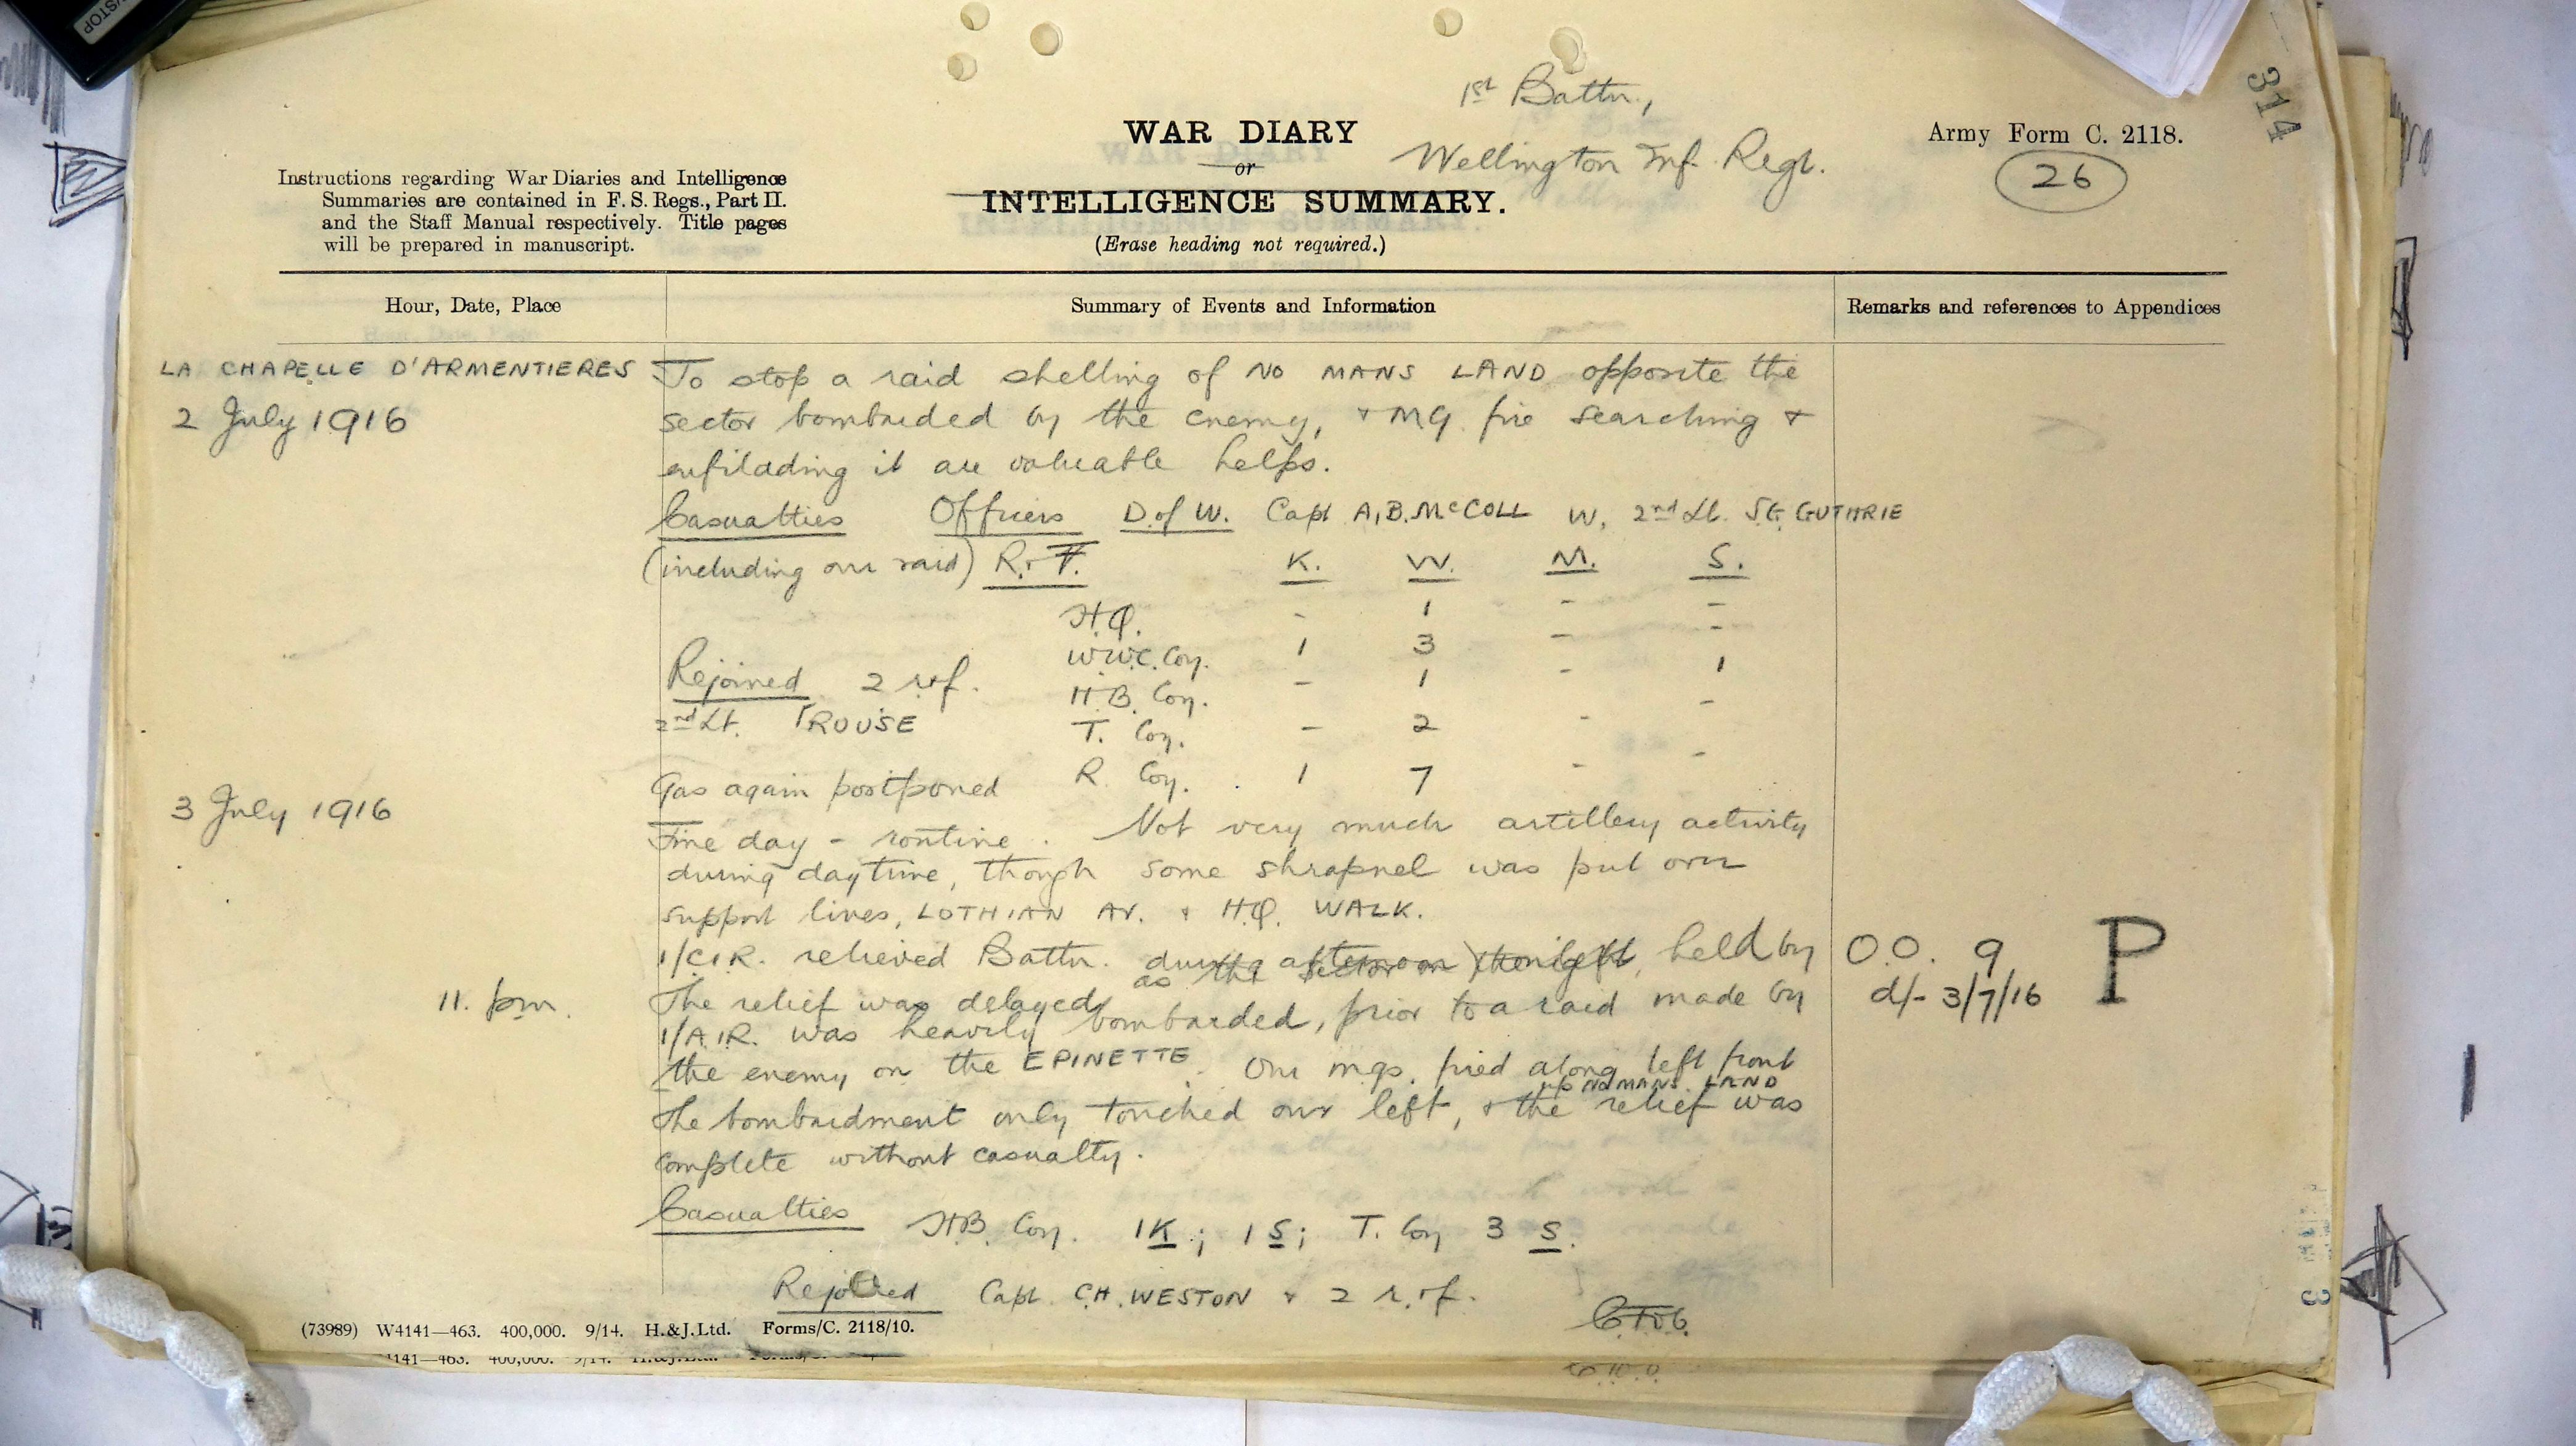 STOP
314
1st Battn.,
Wellington Inf. Regt.
WAR DIARY
or
INTELLIGENCE SUMMARY.
(Erase heading not required.)
Army Form C. 2118.
26
Instructions regarding War Diaries and Intelligence
Summaries are contained in F. S. Regs., Part II.
and the Staff Manual respectively. Title pages
will be prepared in manuscript.
Hour, Date, Place
Summary of Events and Information
Remarks and references to Appendices
LA CHAPELLE D'ARMENTIERES
2 July 1916
To stop a raid shelling of NO MANS LAND opposite the
sector bombarded by the enemy, & MG. fire searching &
enfilading it are valuable helps.
Casualties Officers D. of W. Capt A.B. McCOLL W. 2nd Lt. S.G. GUTHRIE
(including our raid) R. & F. K. W. M. S.
H.Q. - 1 - -
W.W.C. Coy. 1 3 - -
Rejoined 2 r & f. H.B. Coy. - 1 - 1
2nd Lt. PROUSE T. Coy. - 2 - -
Gas again postponed R. Coy. 1 7 - -
3 July 1916
Fine day - routine. Not very much artillery activity
during daytime, though some shrapnel was put over
support lines, LOTHIAN AV. & H.Q. WALK.
1/C.I.R. relieved Battn. during afternoon
11. pm. The relief was delayed as the sector on the left, held by
1/A.I.R. was heavily bombarded, prior to a raid made by
the enemy on the EPINETTE. Our m.gs. fired along left front
NO MANS LAND
The bombardment only touched our left, & the relief was
complete without casualty.
O.O. 9 P
d/- 3/7/16
Casualties H.B. Coy. 1 K; 1 S; T. Coy 3 S.
Rejoined Capt. C.H. WESTON & 2 r. & f.
(73989) W4141—463. 400,000. 9/14. H.&J.Ltd. Forms/C. 2118/10.